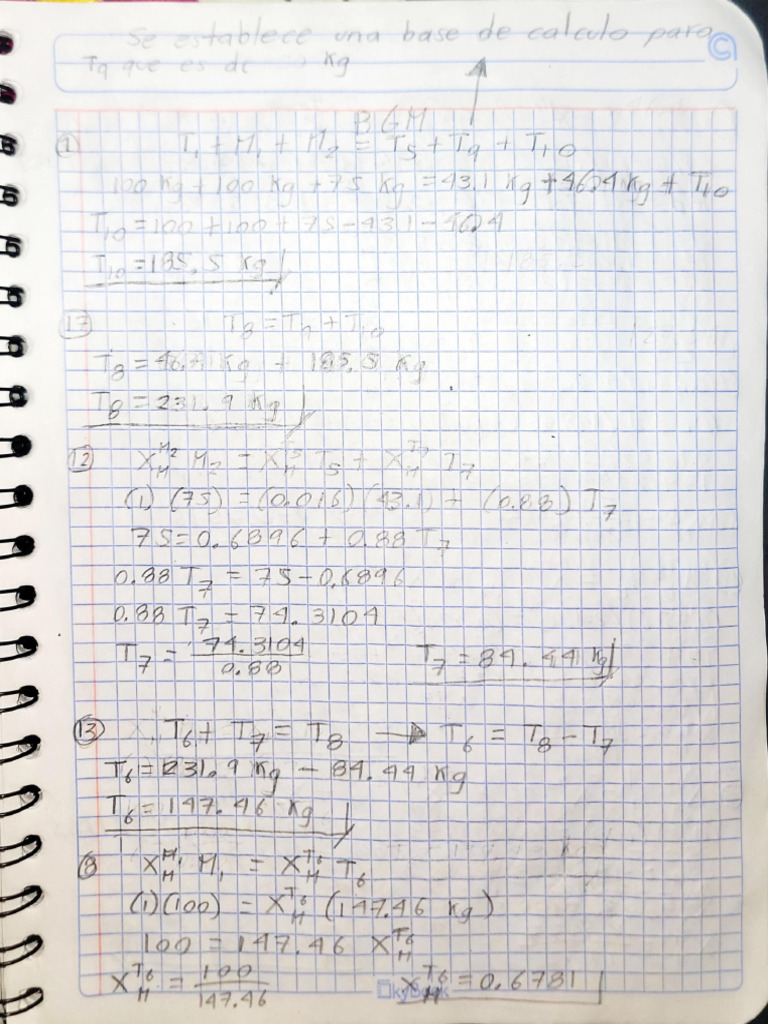 Se establece una base de calculo para
T9 que es de Kg
BGM
① T1 + M1 + M2 = T5 + T9 + T10
100 Kg + 100 Kg + 75 Kg = 43.1 Kg + 46.4 Kg + T10
T10 = 100 + 100 + 75 - 43.1 - 46.4
T10 = 185.5 Kg
⑰ T8 = T9 + T10
T8 = 46.4 Kg + 185.5 Kg
T8 = 231.9 Kg
⑫ X_H^M2 M2 = X_H^T5 T5 + X_H^T7 T7
(1) (75) = (0.016) (43.1) + (0.88) T7
75 = 0.6896 + 0.88 T7
0.88 T7 = 75 - 0.6896
0.88 T7 = 74.3104
T7 = 74.3104 / 0.88 T7 = 84.44 Kg
⑬ T6 + T7 = T8 → T6 = T8 - T7
T6 = 231.9 Kg - 84.44 Kg
T6 = 147.46 Kg
⑧ X_H^M1 M1 = X_H^T6 T6
(1)(100) = X_H^T6 (147.46 Kg)
100 = 147.46 X_H^T6
X_H^T6 = 100 / 147.46 X_H^T6 = 0.6781